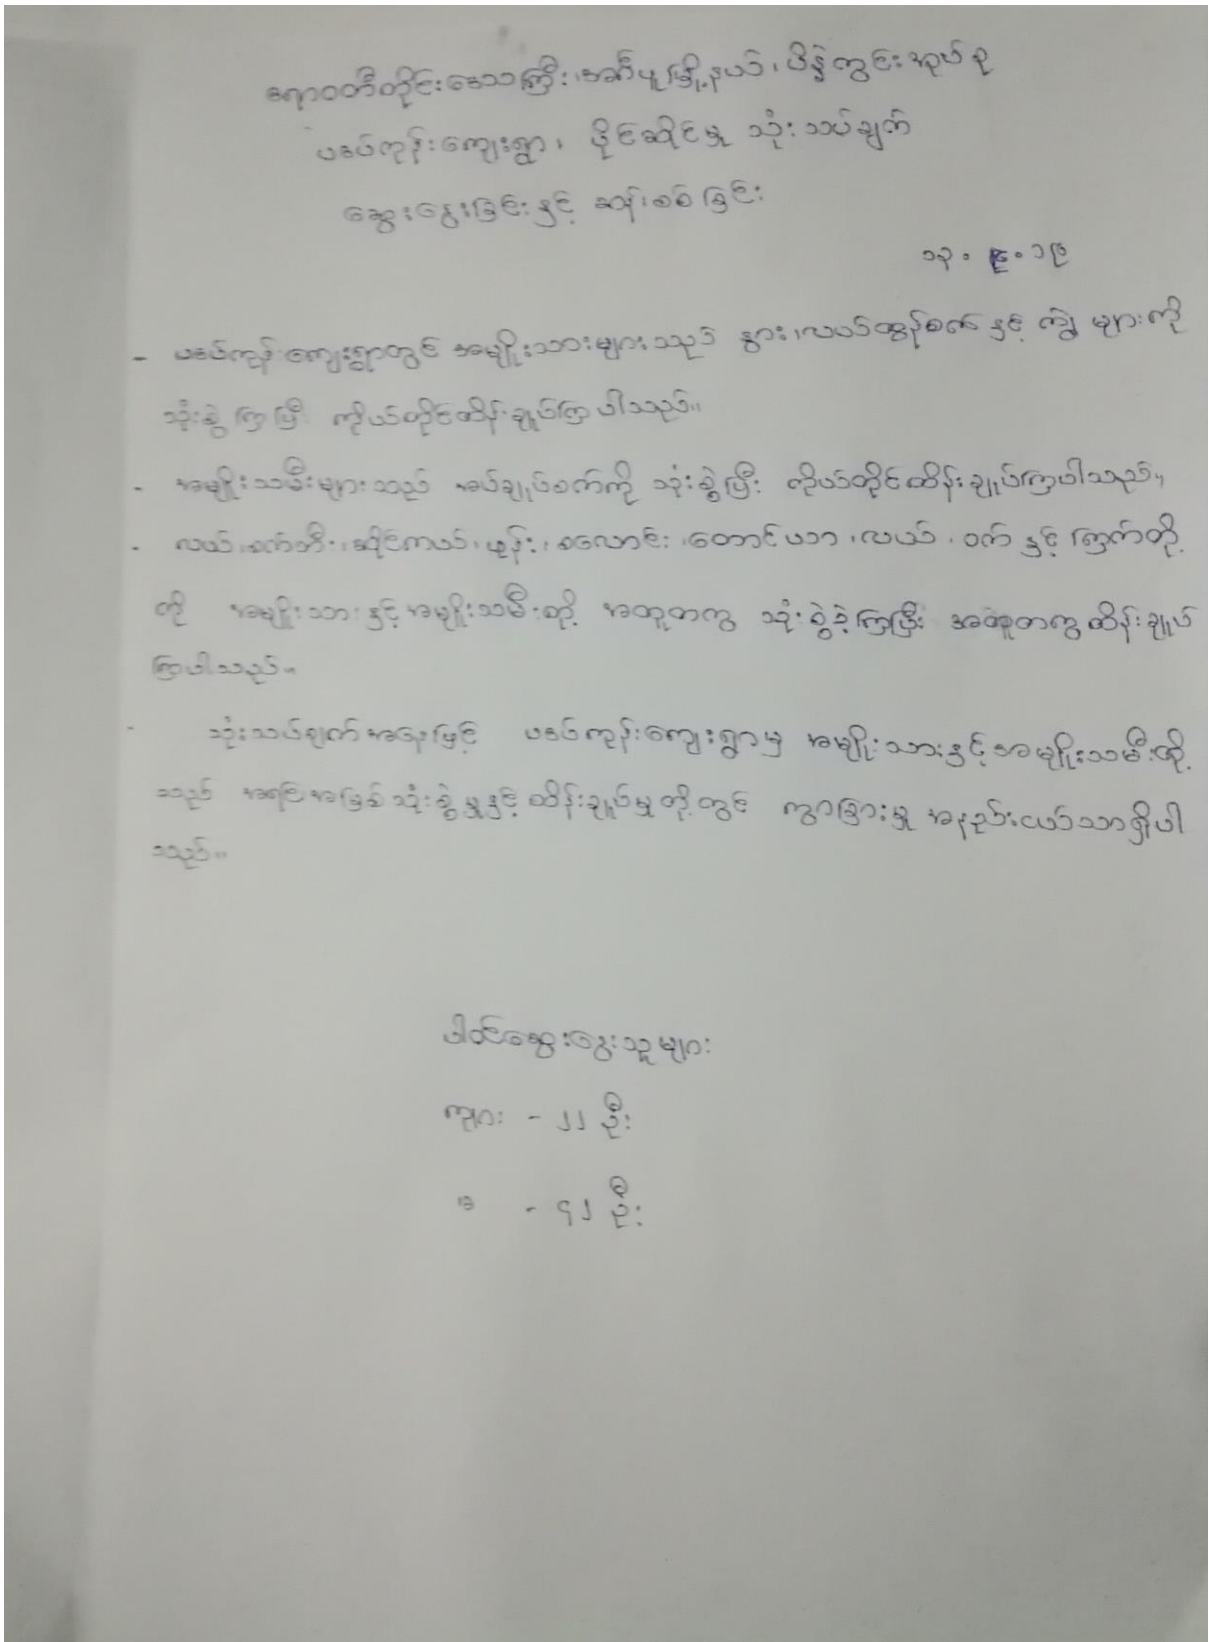 ဧရာဝတီတိုင်းဒေသကြီး၊ အင်္ဂပူမြို့နယ်၊ ပိန္နဲကွင်းအုပ်စု
ပဒပ်ကုန်းကျေးရွာ၊ ပိုင်ဆိုင်မှု သုံးသပ်ချက်
ဆွေးနွေးခြင်းနှင့် ဆန်းစစ်ခြင်း
- ပဒပ်ကုန်းကျေးရွာတွင် အမျိုးသားများသည် နွား၊ လယ်ထွန်စက်နှင့် ကျွဲ များကို
သုံးစွဲကြပြီး ကိုယ်တိုင်ထိန်းချုပ်ကြပါသည်။
- အမျိုးသမီးများသည် အပ်ချုပ်စက်ကို သုံးစွဲပြီး ကိုယ်တိုင်ထိန်းချုပ်ကြပါသည်။
- လယ်၊ စက်ဘီး၊ ဆိုင်ကယ်၊ ဖုန်း၊ စလောင်း၊ တောင်ယာ၊ လယ်၊ ဝက် နှင့် ကြက်တို့
ကို အမျိုးသားနှင့် အမျိုးသမီးတို့ အတူတကွ သုံးစွဲခဲ့ကြပြီး အတူတကွထိန်းချုပ်
ကြပါသည်။
- သုံးသပ်ချက်အနေဖြင့် ပဒပ်ကုန်းကျေးရွာမှ အမျိုးသားနှင့် အမျိုးသမီးတို့
သည် အရင်းအမြစ်သုံးစွဲမှုနှင့် ထိန်းချုပ်မှုတို့တွင် ကွာခြားမှု အနည်းငယ်သာရှိပါ
သည်။
ပါဝင်ဆွေးနွေးသူများ
ကျား - ၂၂ ဦး
မ - ၄၂ ဦး